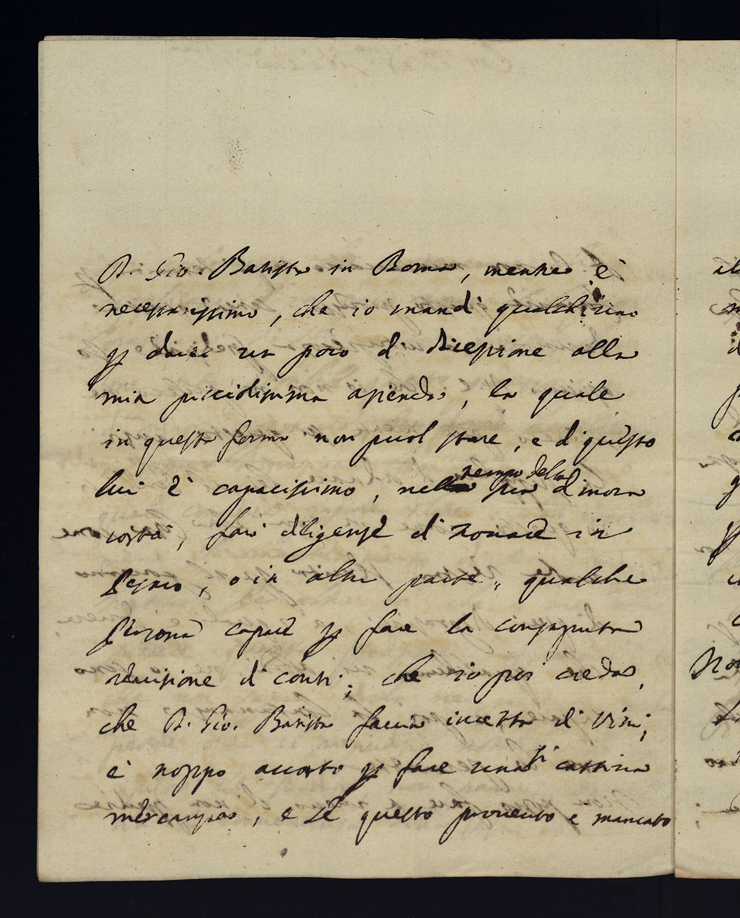 D. Gio. Batista in Roma, mentre è
necessarissimo, che io mandi qualched'uno
p dare un poco di direzione alla
mia piccidissima azienda, la quale
in questa forma non puol stare, e di questo
lui è capacissimo, nel tempo della sua dimora
costà, farà diligenze di trovare in
Pesaro, o in altre parte, qualche
Persona capace p fare la consaputa
revisione di conti; che io poi creda,
che D. Gio. Batista faccia incetta di Vini,
è troppo accorto p fare una sì cattiva
mercanzia, e se questo provento è mancato